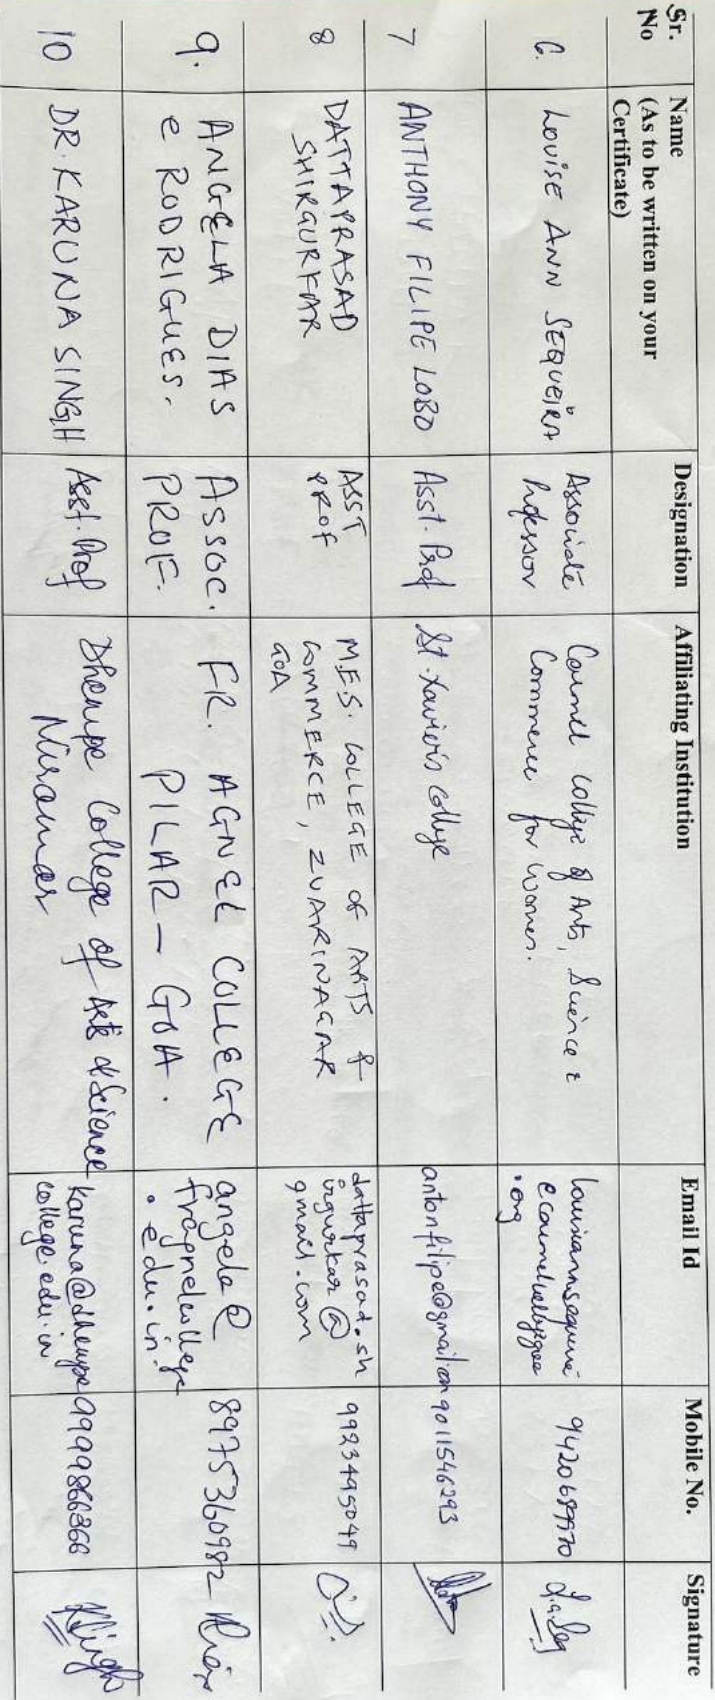 Sr. No
Name
(As to be written on your
Certificate)
Designation
Affiliating Institution
Email Id
Mobile No.
Signature
6.
Louise Ann Sequeira
Associate
Professor
Carmel College of Arts, Science &
Commerce for Women.
.org
9420689970
7
ANTHONY FILIPE LOBO
Asst. Prof
St. Xavier's College
antonfilipe@gmail.com
9011546293
8
DATTAPRASAD
SHIRGURKAR
ASST
PROF
M.E.S. COLLEGE OF ARTS &
COMMERCE, ZUARINAGAR
GOA
dattaprasad.sh
irgurkar@
gmail.com
9923495049
9.
ANGELA DIAS
e RODRIGUES.
ASSOC.
PROF.
FR. AGNEL COLLEGE
PILAR - GOA.
angela@
fragnelcollege
.edu.in.
8975360982
10
DR. KARUNA SINGH
Asst. Prof
Dhempe College of Arts & Science
Miramar
karuna@dhempe
college.edu.in
9999866366
KSingh